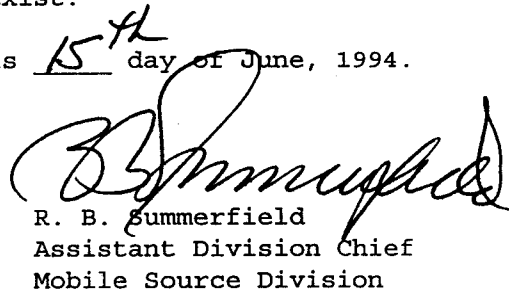 exist.
s 15th day of June, 1994.
R B Summerfield
R. B. Summerfield
Assistant Division Chief
Mobile Source Division